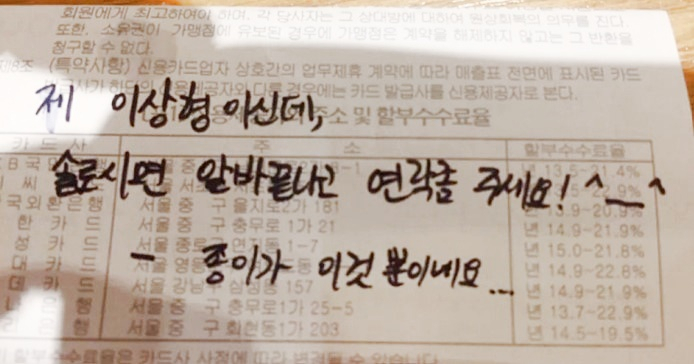 회원에게 최고하여야 하며, 각 당사자는 그 상대방에 대하여 원상회복의 의무를 진다.
또한, 소유권이 가맹점에 유보된 경우에 가맹점은 계약을 해제하지 않고는 그 반환을
청구할 수 없다.
(특약사항) 신용카드업자 상호간의 업무제휴 계약에 따라 매출표 전면에 표시된 카드
다른 경우에는 카드 발급사를 신용제공자로 본다.
제 이상형이신데,
주소 및 할부수수료율
카 드 사 주 소 할부수수료율
솔로시면 알바끝나고 연락좀 주세요! ^__^
국외환은행 서울 중 구 을지로2가 181 년 13.9-20.9%
한 카 드 서울 중 구 충무로 1가 21 년 14.9-21.9%
성 카 드 서울 중 1-7 년 15.0-21.8%
- 종이가 이것 뿐이네요...
대 카 드 서울 년 14.9-22.8%
데 카 드 서울 강남 157 년 14.9-21.9%
은 행 서울 중 구 충무로1가 25-5 년 13.7-22.9%
은 행 서울 중 구 회현동1가 203 년 14.5-19.5%
할부수수료율은 카드사 사정에 따라 변경될 수 있습니다.